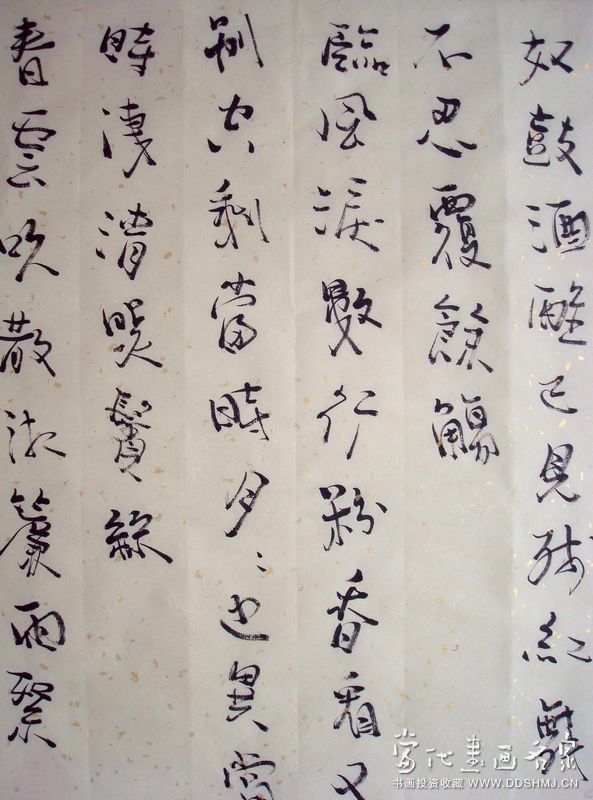 奴鼓酒醒已見殘紅舞
不忍覆餘觴
臨風淚數行粉香看又
別空剩當時月〻也異當
時淒清照鬢絲
春雲吹散湘簾雨絮
当代書画名家
书画投资收藏 WWW.DDSHMJ.CN